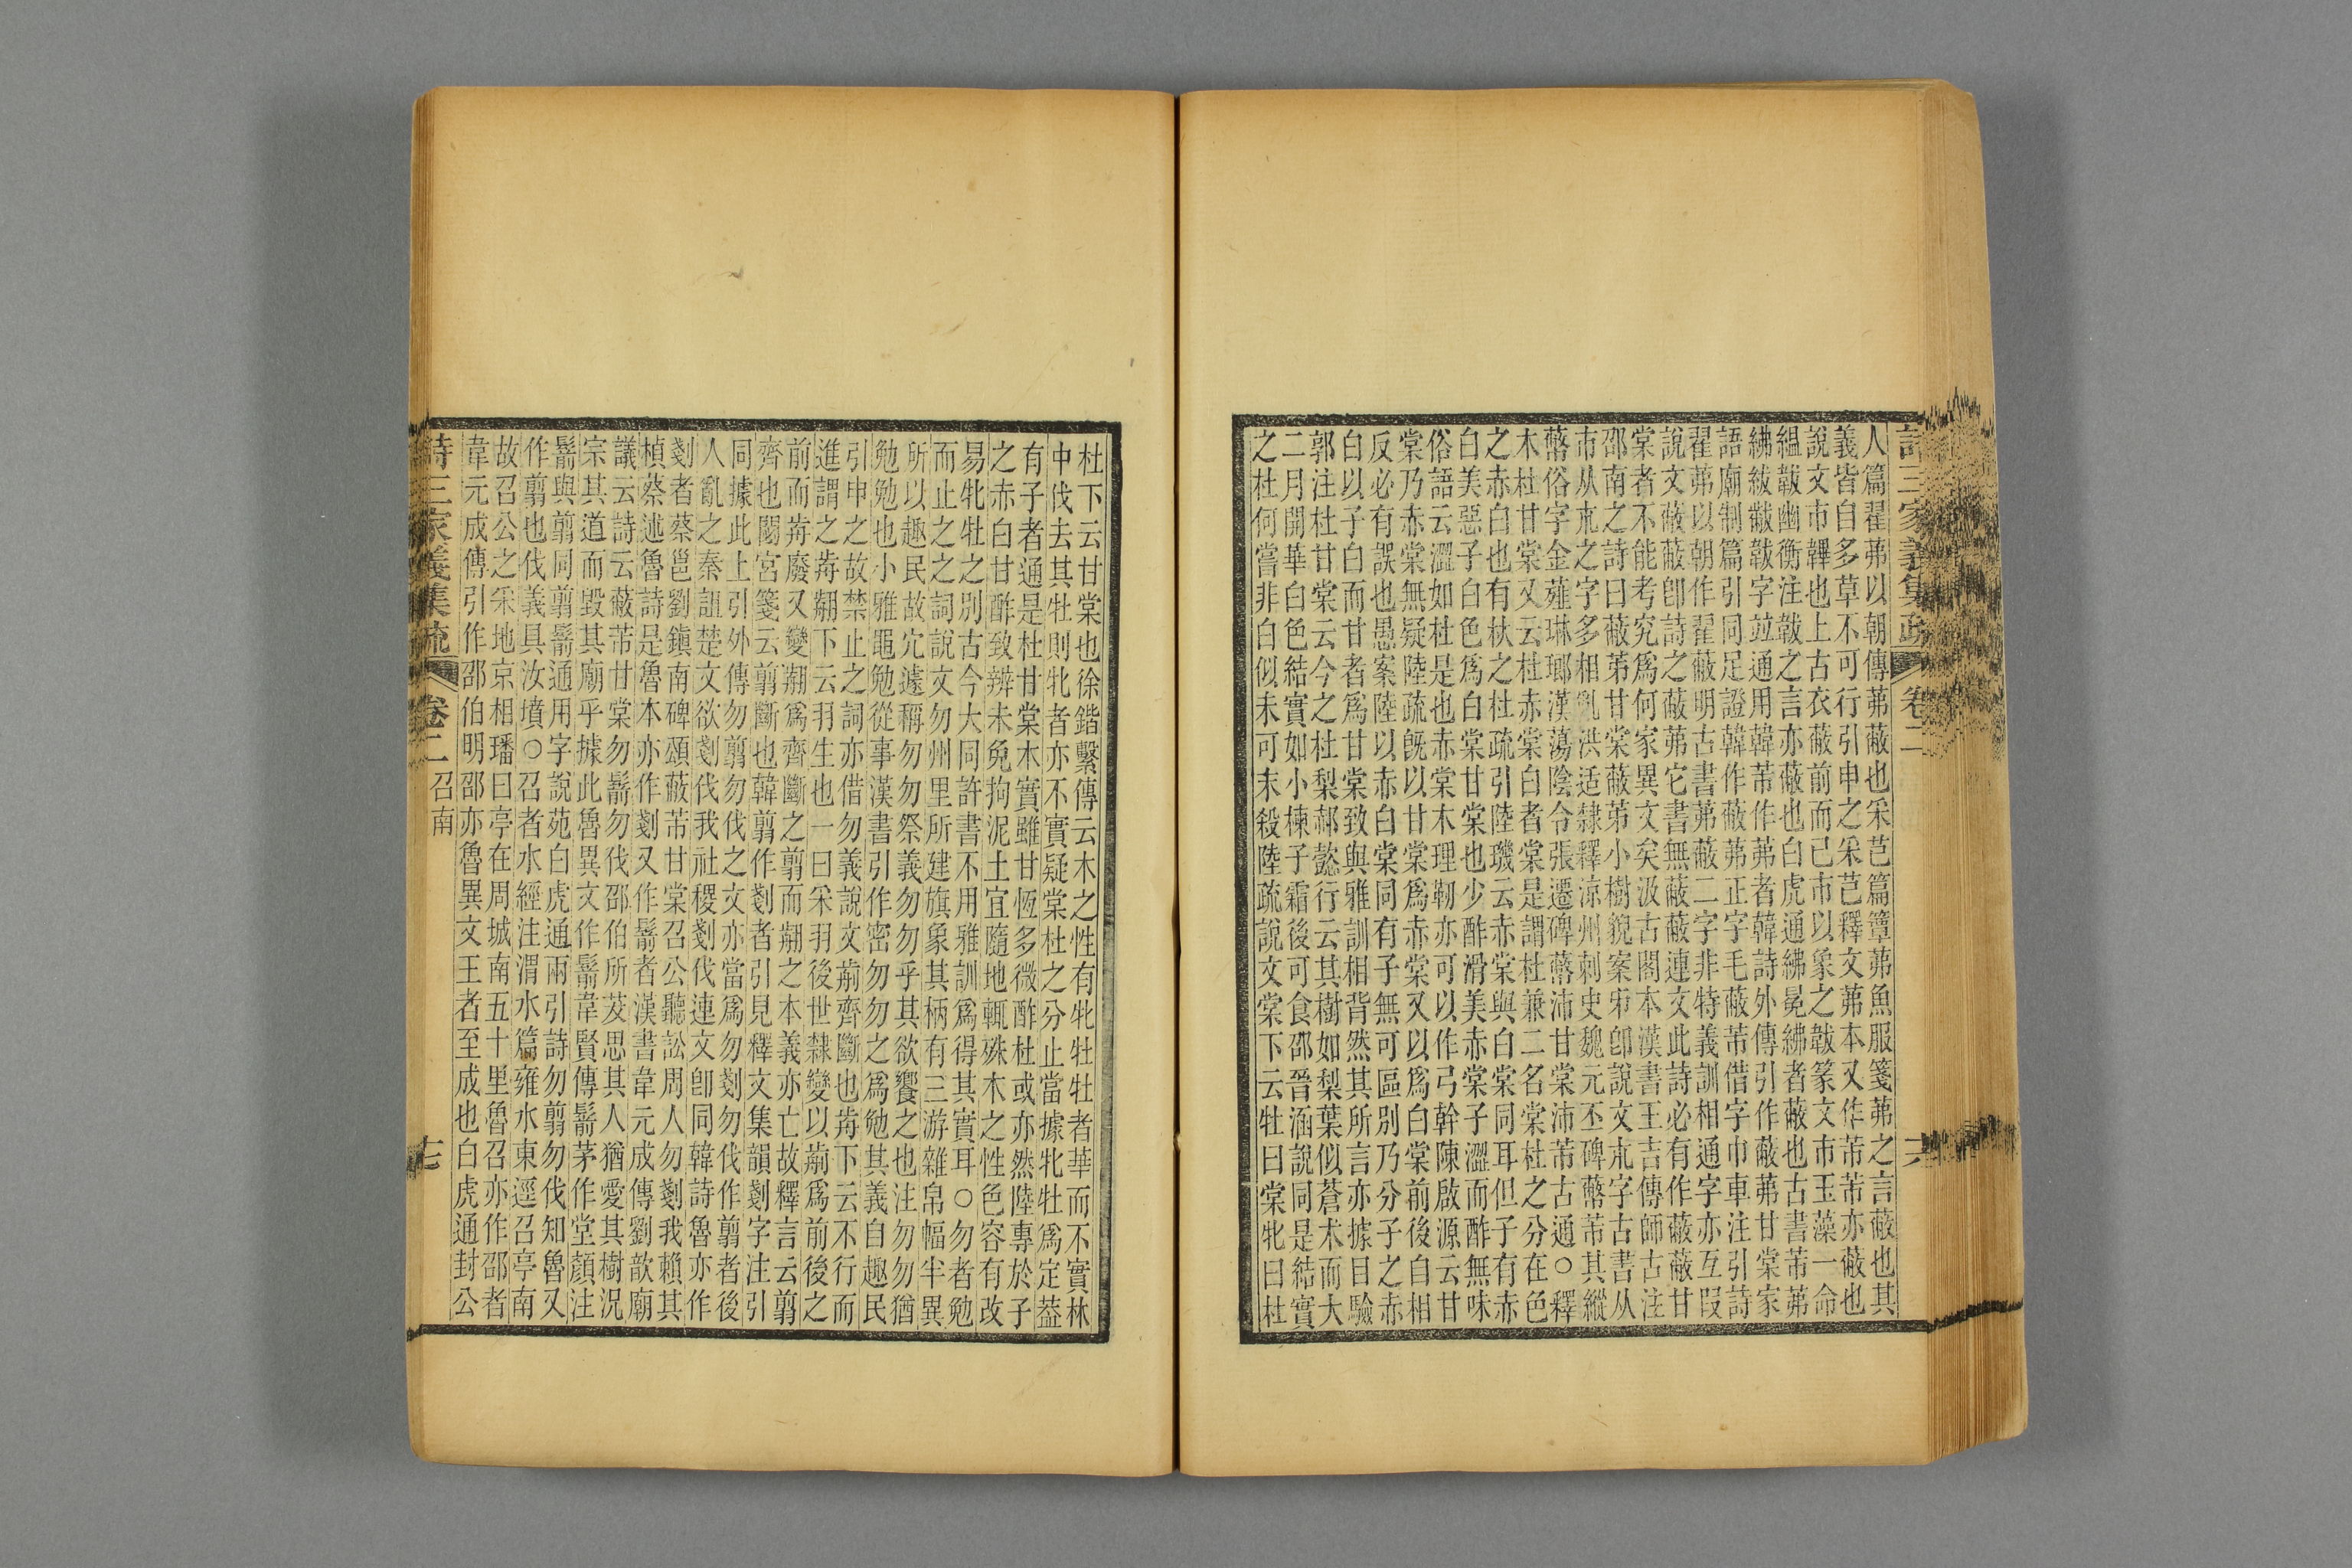 詩三家義集疏 卷二
人篇翟茀以朝傳茀蔽也采芑篇簟茀魚服箋茀之言蔽也其
義皆自多草不可行引申之采芑釋文茀本又作芾芾亦蔽也
說文巿韠也上古衣蔽前而已巿以象之韍篆文巿玉藻一命
縕韍幽衡注韍之言亦蔽也白虎通紼冕紼者蔽也古書芾茀
紼紱黻韍字竝通用韓芾作茀者韓詩外傳引作蔽茀甘棠家
語廟制篇引同足證韓作蔽茀正字毛蔽芾借字巾車注引詩
翟茀以朝作翟蔽明古書茀蔽二字非特義訓相通字亦互叚
說文蔽蔽卽詩之蔽茀它書無蔽蔽連文此詩必有作蔽蔽甘
棠者不能考究爲何家異文矣汲古閣本漢書王吉傳師古注
邵南之詩曰蔽茀甘棠蔽茀小樹貌案宋卽說文朮字古書从
市从朮之字多相亂洪适隸釋涼州刺史魏元丕碑幣芾其縱
幣俗字金薤琳瑯漢蕩陰令張遷碑蔽沛甘棠沛芾古通○釋
木杜甘棠又云杜赤棠白者棠是謂杜兼二名棠杜之分在色
之赤白也有杕之杜疏引陸璣云赤棠與白棠同耳但子有赤
白美惡子白色爲白棠甘棠也少酢滑美赤棠子澀而酢無味
俗語云澀如杜是也赤棠木理韌亦可以作弓幹陳啟源云甘
棠乃赤棠無疑陸疏旣以甘棠爲赤棠又以爲白棠前後自相
反必有誤也愚案陸以赤白棠同有子無可區別乃分子之赤
白以子白而甘者爲甘棠致與雅訓相背然其所言亦據目驗
郭注杜甘棠云今之杜梨郝懿行云其樹如梨葉似蒼朮而大
二月開華白色結實如小楝子霜後可食邵晉涵說同是結實
之杜何嘗非白似未可末殺陸疏說文棠下云牡曰棠牝曰杜
杜下云甘棠也徐鍇繫傳云木之性有牝牡牡者華而不實林
中伐去其牡則牝者亦不實疑棠杜之分止當據牝牡爲定葢
有子者通是杜甘棠木實雖甘恆多微酢杜或亦然陸專於子
之赤白甘酢致辨未免拘泥土宜隨地輒殊木之性色容有改
易牝牡之別古今大同許書不用雅訓爲得其實耳○勿者勉
而止之之詞說文勿州里所建旗象其柄有三游雜帛幅半異
所以趣民故宂遽稱勿勿祭義勿勿乎其欲饗之也注勿勿猶
勉勉也小雅黽勉從事漢書引作密勿勿之爲勉其義自趣民
引申之故禁止之詞亦借勿義說文前齊斷也歬下云不行而
進謂之歬翦下云羽生也一曰采羽後世隸變以前爲前後之
前而歬廢又變翦爲齊斷之翦而翦之本義亦亡故釋言云翦
齊也閟宮箋云翦斷也韓翦作剗者引見釋文集韻剗字注引
同據此上引外傳勿翦勿伐之文亦當爲勿剗勿伐作翦者後
人亂之秦詛楚文欲剗伐我社稷剗伐連文卽同韓詩魯亦作
剗者蔡邕劉鎭南碑頌蔽芾甘棠召公聽訟周人勿剗我賴其
楨蔡述魯詩是魯本亦作剗又作鬋者漢書韋元成傳劉歆廟
議云詩云蔽芾甘棠勿鬋勿伐邵伯所茇思其人猶愛其樹況
宗其道而毀其廟乎據此魯異文作鬋韋賢傳鬋茅作堂顏注
鬋與翦同翦鬋通用字說苑白虎通兩引詩勿翦勿伐知魯又
作翦也伐義具汝墳○召者水經注渭水篇雍水東逕召亭南
故召公之采地京相璠曰亭在周城南五十里魯召亦作邵者
韋元成傳引作邵伯明邵亦魯異文王者至成也白虎通封公
詩三家義集疏 卷二 召南